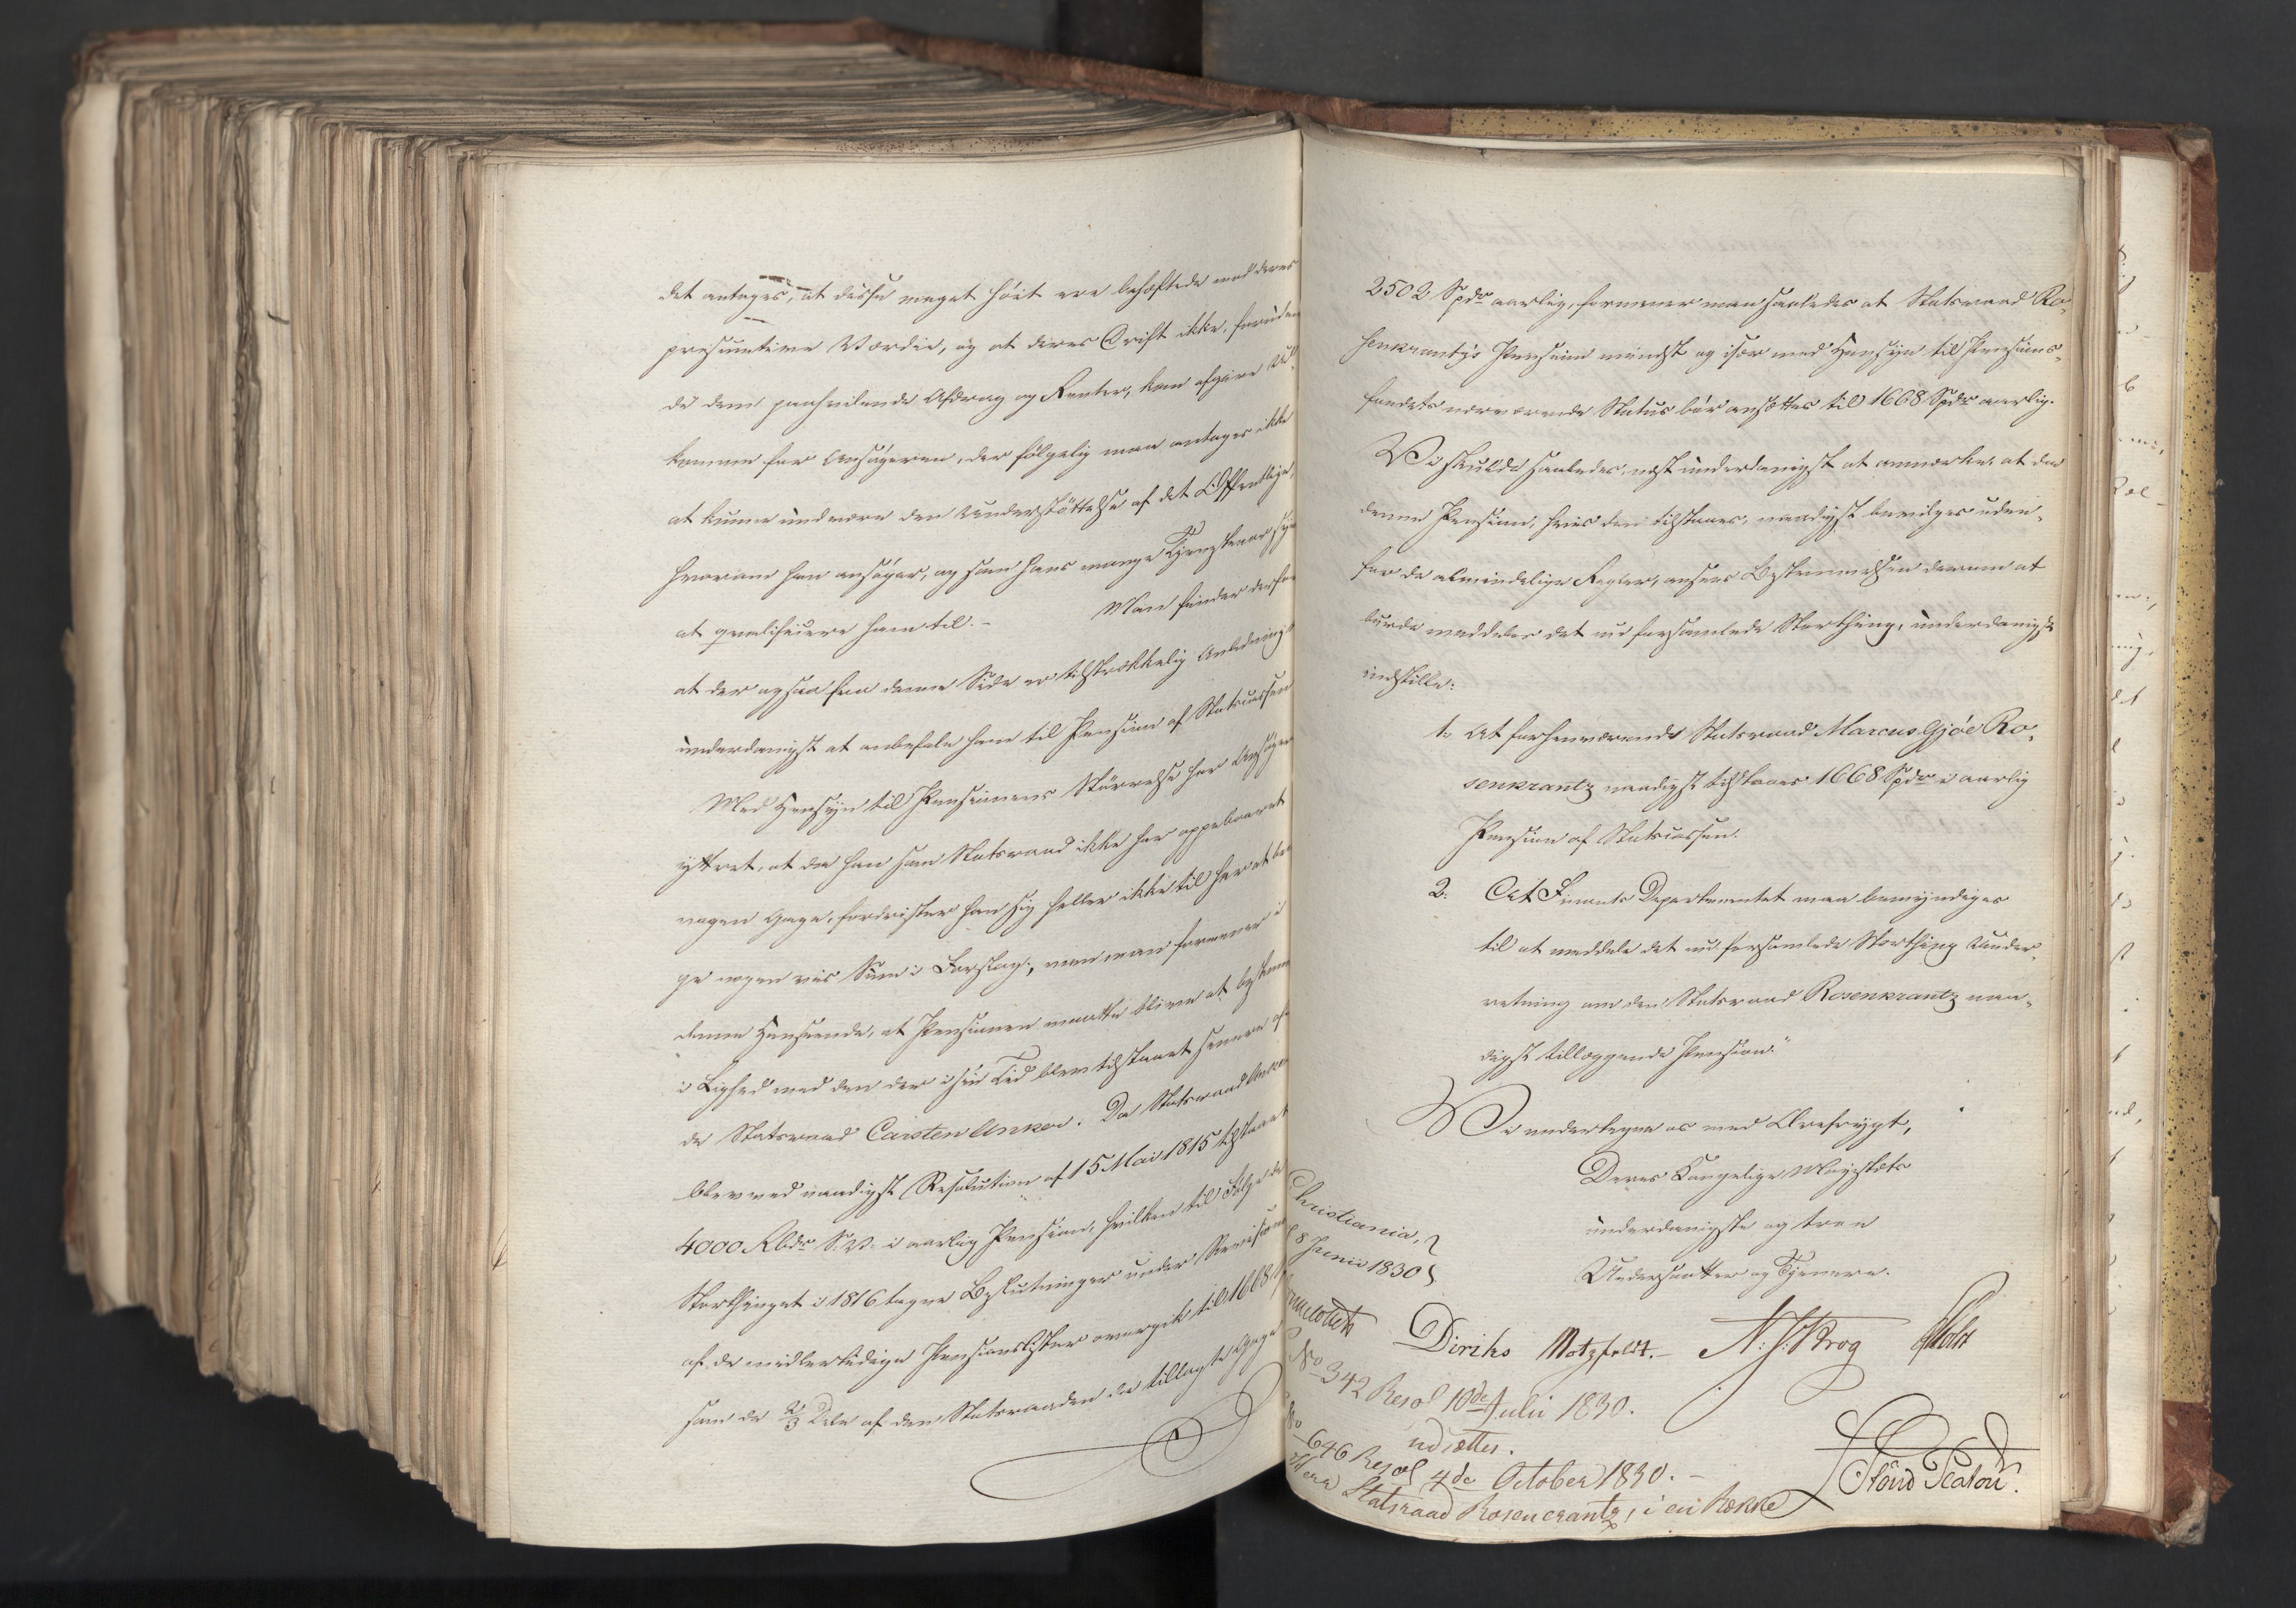 det antages, at disse meget höit ere behæftede mod deres
presumtive Værdie, og at deres Drift ikke, foruden
de dem paahvilende Afdrag og Renter, kan afgive Ud-
komme for Ansøgeren, der fölgelig maa antages ikke
at kunne undvære den Understöttelse af det Offentlige,
hvorom han ansøger, og som hans mange Tjenesteaar synes
at qualificere ham til. - Man finder derfor
at der ogsaa fra denne Side er tilstrækkelig Anledning
underdanigst at anbefale ham til Pension af Statscassen
Med Hensyn til Pensionens Störrelse har Ansøgeren
yttret, at da han som Statsraad ikke har oppebaaret
nogen Gage, fordrister han sig heller ikke til her at bru-
ge nogen vis Sum i Forslag, men man formener i
denne Henseende, at Pensionen maatte blive at bestemme
i Lighed med den der i sin Tid blev tilstaaet senere af-
de Statsraad Carsten Anker. Da Statsraad Anker
blev ved naadigst Resolution af 15 Mai 1815 tilstaaet
4000 Rbdr S.V. i aarlig Pension, hvilken til Fölge de
Storthinget i 1816 tagne Beslutninger under Revision
af de midlertidige Pensionslister overgik til 1668
som de 2/3 Dele af den Statsraaden da tillagte Gage
2502 Spdr aarlig, formener man saaledes at Statsraad Ro-
senkrantz's Pension mindst og især med Hensyn til Pensions-
fondets nærværende Status bör ansættes til 1668 Spdr aarlig.
Vi skulde saaledes, næst underdanigst at anmærke, at da
denne Pension, hvis den tilstaaes, naadigst bevilges uden-
for de almindelige Regler, ansees Bestemmelsen derom at
burde meddeles det nu forsamlede Storthing, underdanigst
indstille:
1. At forhenværende Statsraad Marcus Gjöe Ro-
senkrantz naadigst tilstaaes 1668 Spdr i aarlig
Pension af Statscassen.
2. At Finants Departementet maa bemyndiges
til at meddele det nu forsamlede Storthing Under-
retning om den Statsraad Rosenkrantz naa-
digst tillæggende Pension."
Vi undertegne os med Ærefrygt,
Deres Kongelige Majestæts
underdanigste og troe
Undersaatter og Tjenere.
Christiania,
18 Junii 1830
Collett Diriks Motzfeldt. - N. J. Krog Holst
No 342 Resol 10de Julii 1830.
udsættes.
No 646 Resol 4de October 1830. -
Herr Statsraad Rosencrantz, i en Række